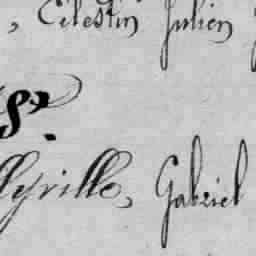 , Célestin Julien
lyrille, Gabriel